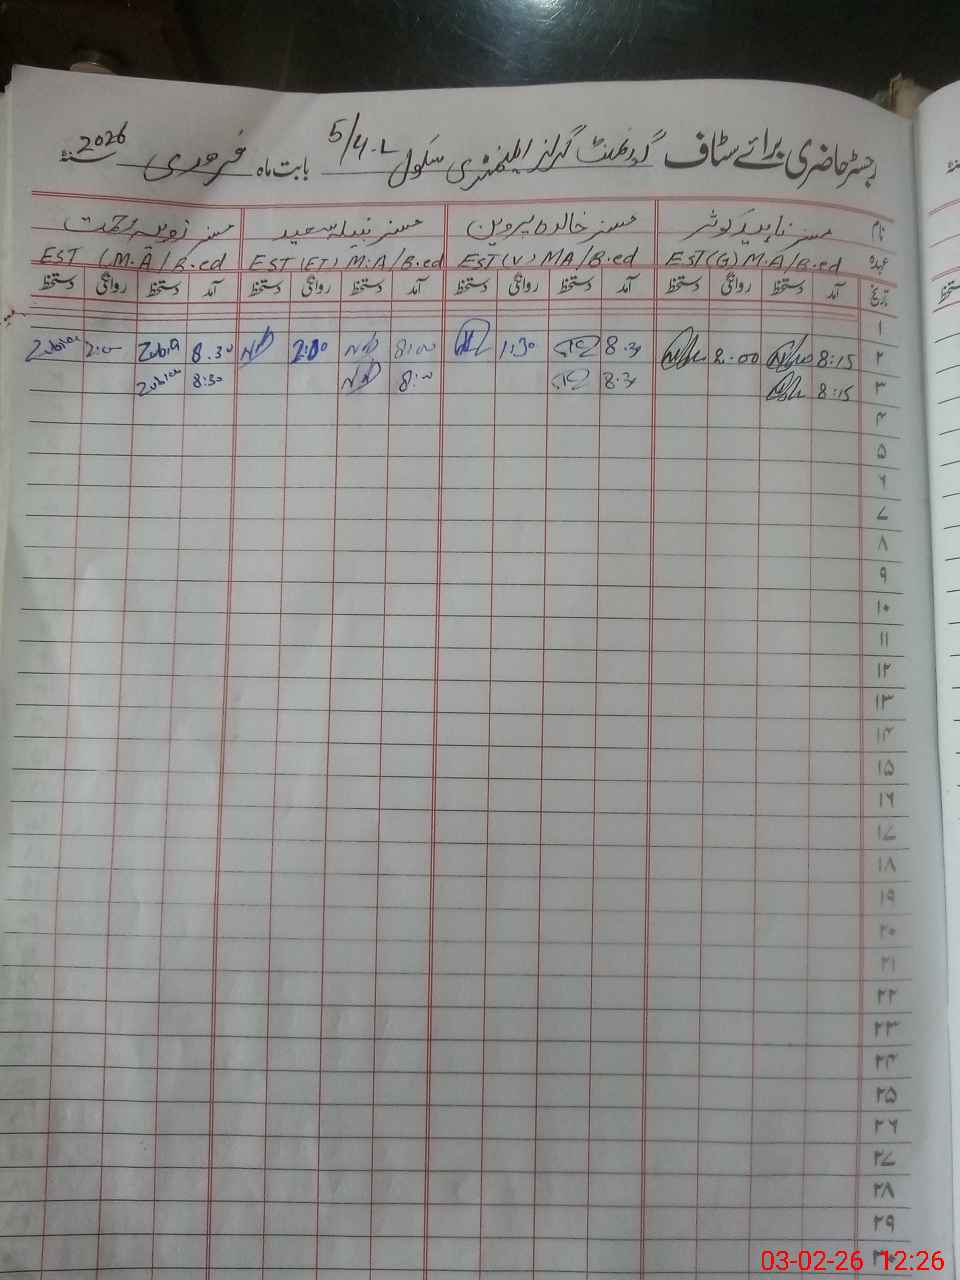 رجسٹر حاضری برائے سٹاف گورنمنٹ گرلز ایلیمنٹری سکول 5/4.L بابت ماہ فروری سنہ 2026
نام مسز ناہید کوثر مسز خالدہ پروین مسز نبیلہ سعید مسز زوبیہ رحمت
عہدہ EST(G) M.A/B.ed EST(V) MA/B.ed EST(ET) M.A/B.ed EST (M.A/B.ed
تاریخ آمد دستخط روانگی دستخط آمد دستخط روانگی دستخط آمد دستخط روانگی دستخط آمد دستخط روانگی دستخط
۱
۲ 8:15 2.00 8.30 1:30 8:00 2:00 8.30 Zubia 2:00 Zubia
۳ 8:15 8.30 8:00 8:30 Zubia
۴
۵
۶
۷
۸
۹
۱۰
۱۱
۱۲
۱۳
۱۴
۱۵
۱۶
۱۷
۱۸
۱۹
۲۰
۲۱
۲۲
۲۳
۲۴
۲۵
۲۶
۲۷
۲۸
۲۹
۳۰
03-02-26 12:26